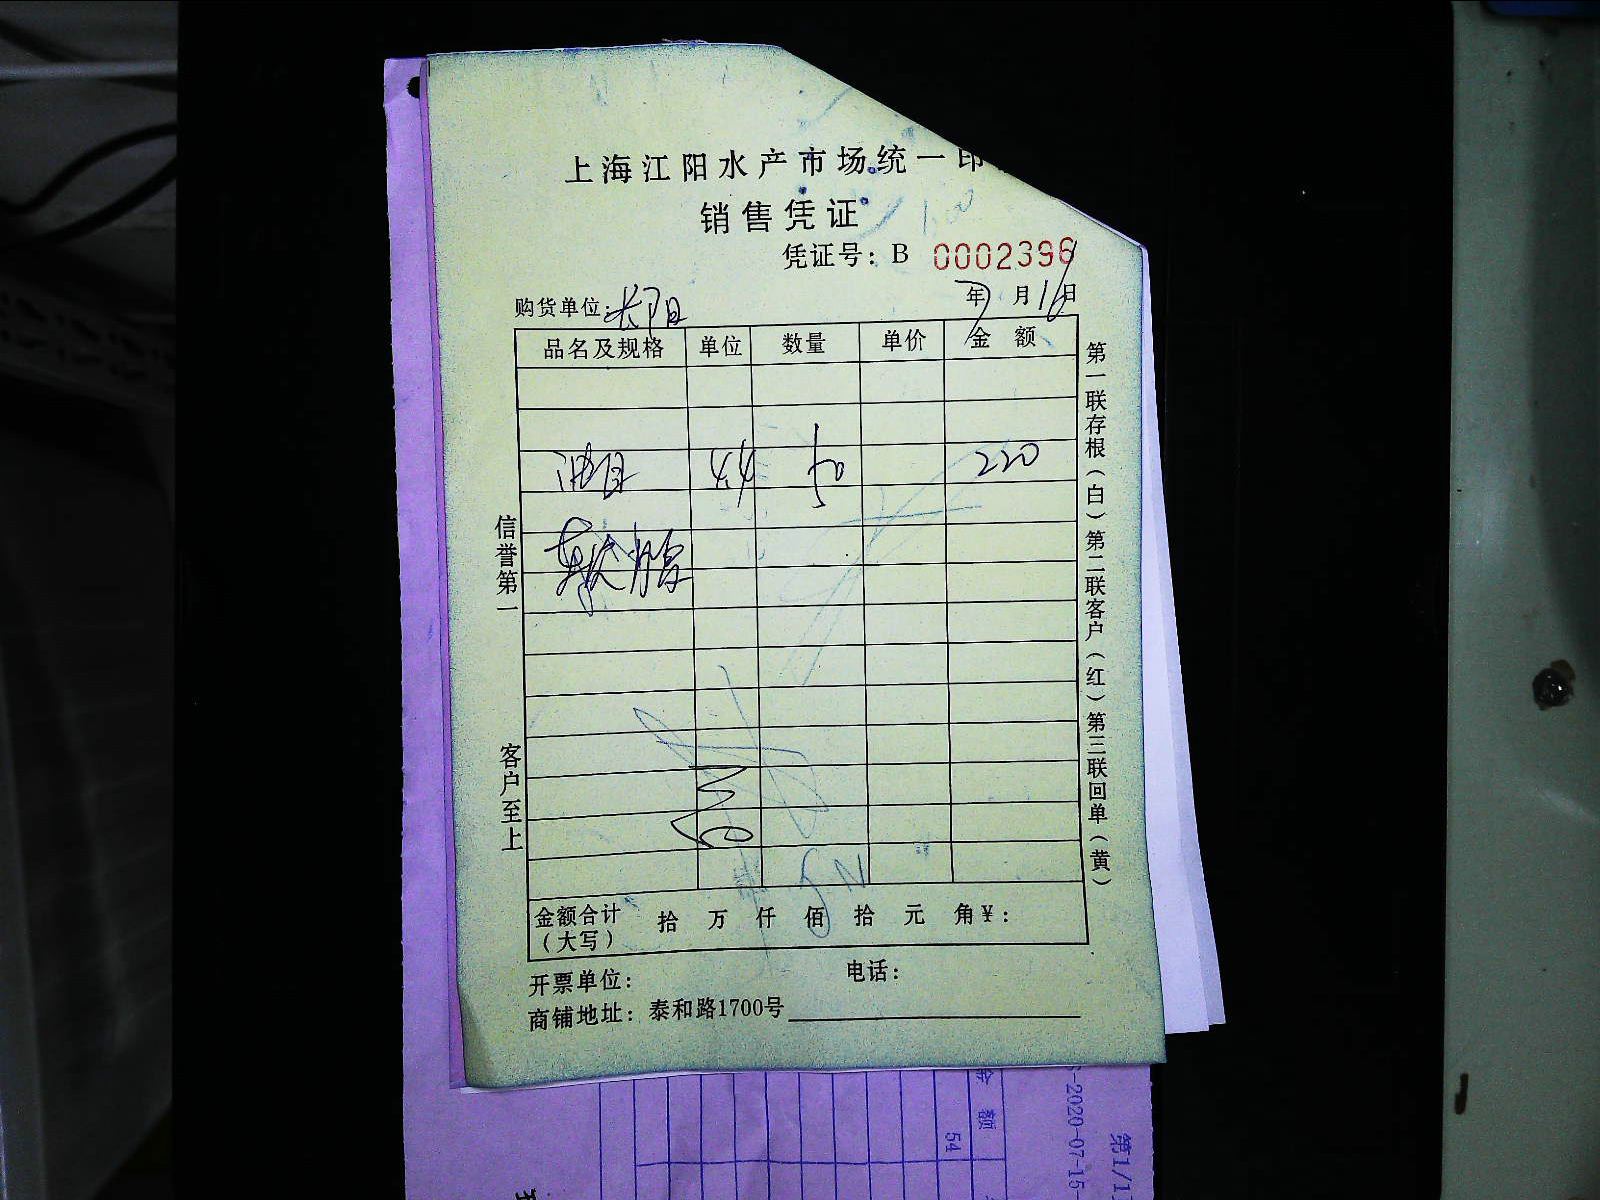 上海江阳水产市场统一印
销售凭证
凭证号：B 0002396
购货单位：长阳 年 7 月 16 日
品名及规格 单位 数量 单价 金额
44 50 220
软
信誉第一
客户至上
第一联存根（白）第二联客户（红）第三联回单（黄）
金额合计（大写） 拾 万 仟 佰 拾 元 角 ¥：
开票单位： 电话：
商铺地址：泰和路1700号
金额
54
-2020-07-15-
第1/1